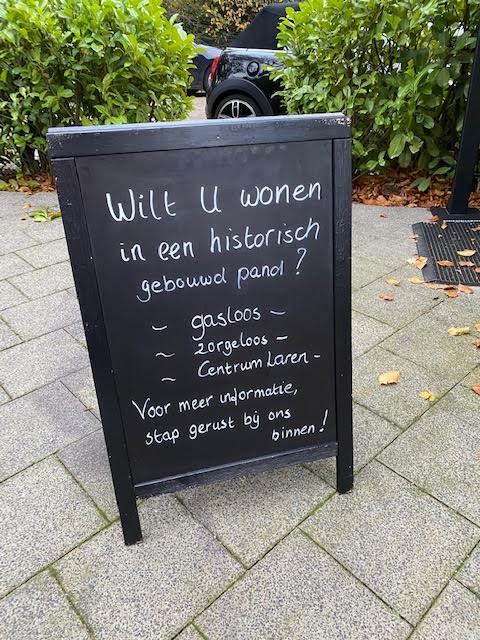 Wilt U wonen
in een historisch
gebouwd pand?
~ gasloos ~
~ zorgeloos -
~ Centrum Laren -
Voor meer informatie,
stap gerust bij ons
binnen!